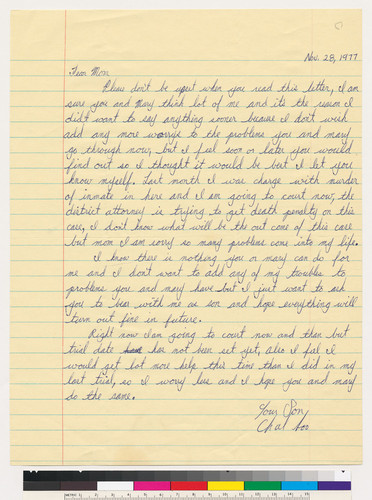 Nov. 28, 1977
Dear Mom,
Please don't be upset when you read this letter, I am
sure you and Mary think lot of me and its the reason I
didn't want to say anything sooner because I don't wish
add any more worrys to the problems you and mary
go through now, but I ful soon or later you would
find out so I thought it would be but I let you
know myself. Last month I was charge with murder
of inmate in here and I am going to court now, the
district attorney is trying to get death penalty on this
case, I don't know what will be the out come of this case
but mom I am sorry so many problems come into my life.
I know there is nothing you or mary can do for
me and I don't want to add any of my troubles to
problems you and mary have but I just want to ask
you to bear with me as son and hope everything will
turn out fine in future.
Right now I am going to court now and than but
trial date has not been set yet, also I ful I
would get lot more help this time than I did in my
last trial, so I worry less and I hope you and mary
do the same.
Your Son,
Chol Soo